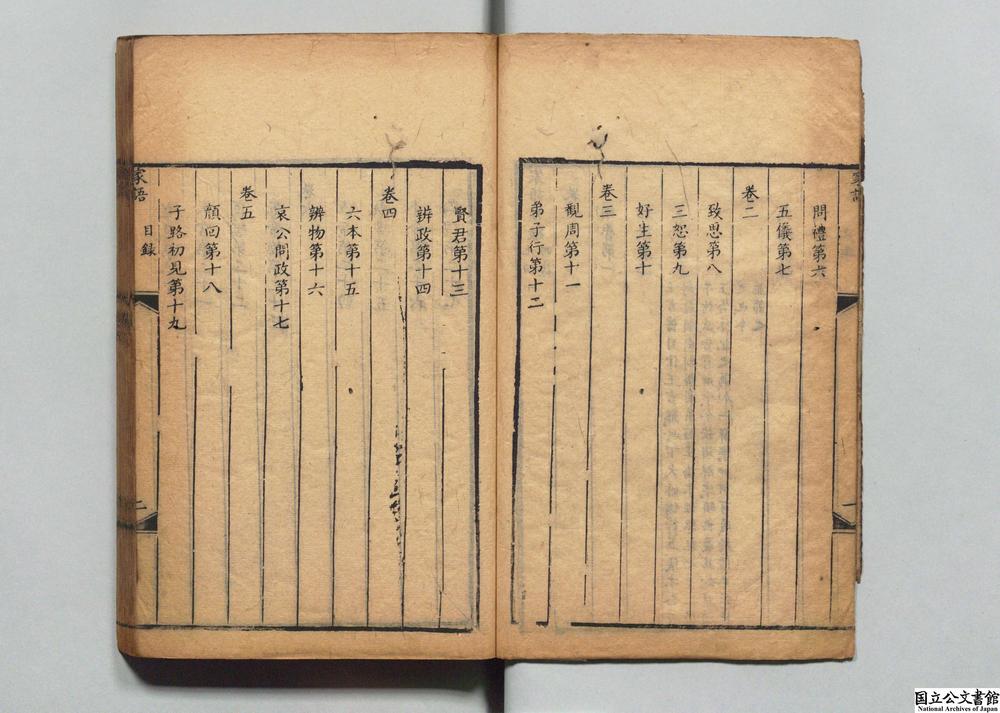 問禮第六
五儀第七
卷二
致思第八
三恕第九
好生第十
卷三
觀周第十一
弟子行第十二
賢君第十三
辨政第十四
卷四
六本第十五
辨物第十六
哀公問政第十七
卷五
顔回第十八
子路初見第十九
家語
目録
二
国立公文書館
National Archives of Japan